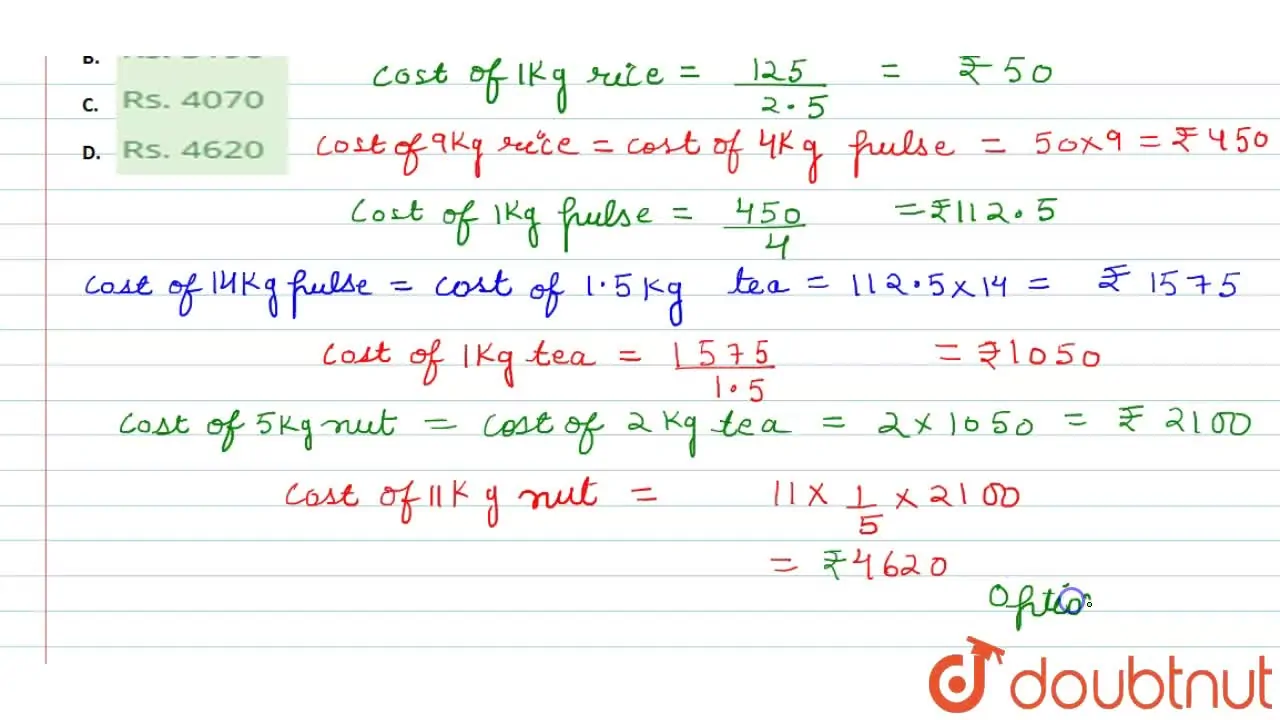 B.
cost of 1Kg rice = 125/2.5 = ₹ 50
C. Rs. 4070
D. Rs. 4620
cost of 9Kg rice = cost of 4Kg pulse = 50×9 = ₹ 450
cost of 1Kg pulse = 450/4 = ₹112.5
cost of 14Kg pulse = cost of 1.5Kg tea = 112.5×14 = ₹ 1575
cost of 1Kg tea = 1575/1.5 = ₹1050
cost of 5Kg nut = cost of 2Kg tea = 2×1050 = ₹ 2100
cost of 11Kg nut = 11× 1/5 × 2100
= ₹4620
Optio
doubtnut